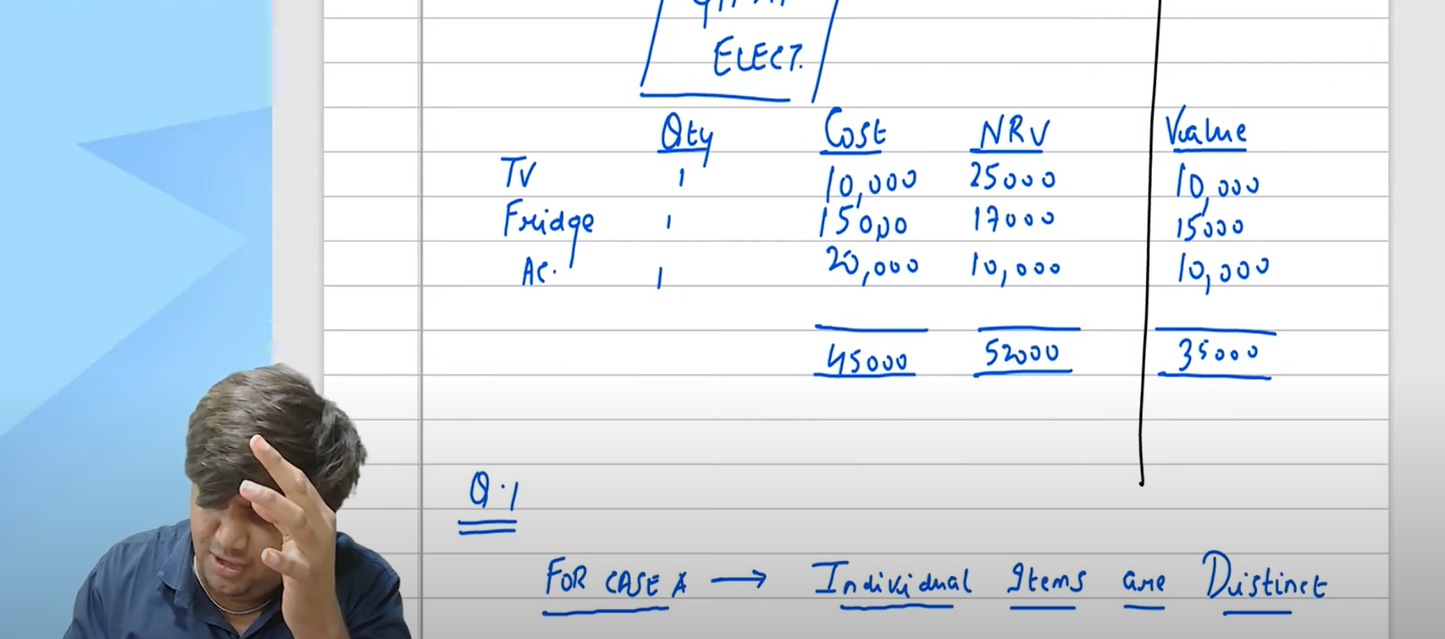 ELECT.
Qty Cost NRV Value
TV 1 10,000 25000 10,000
Fridge 1 15000 17000 15000
Ac. 1 20,000 10,000 10,000
45000 52000 35000
Q.1
FOR CASE A → Individual Items are Distinct